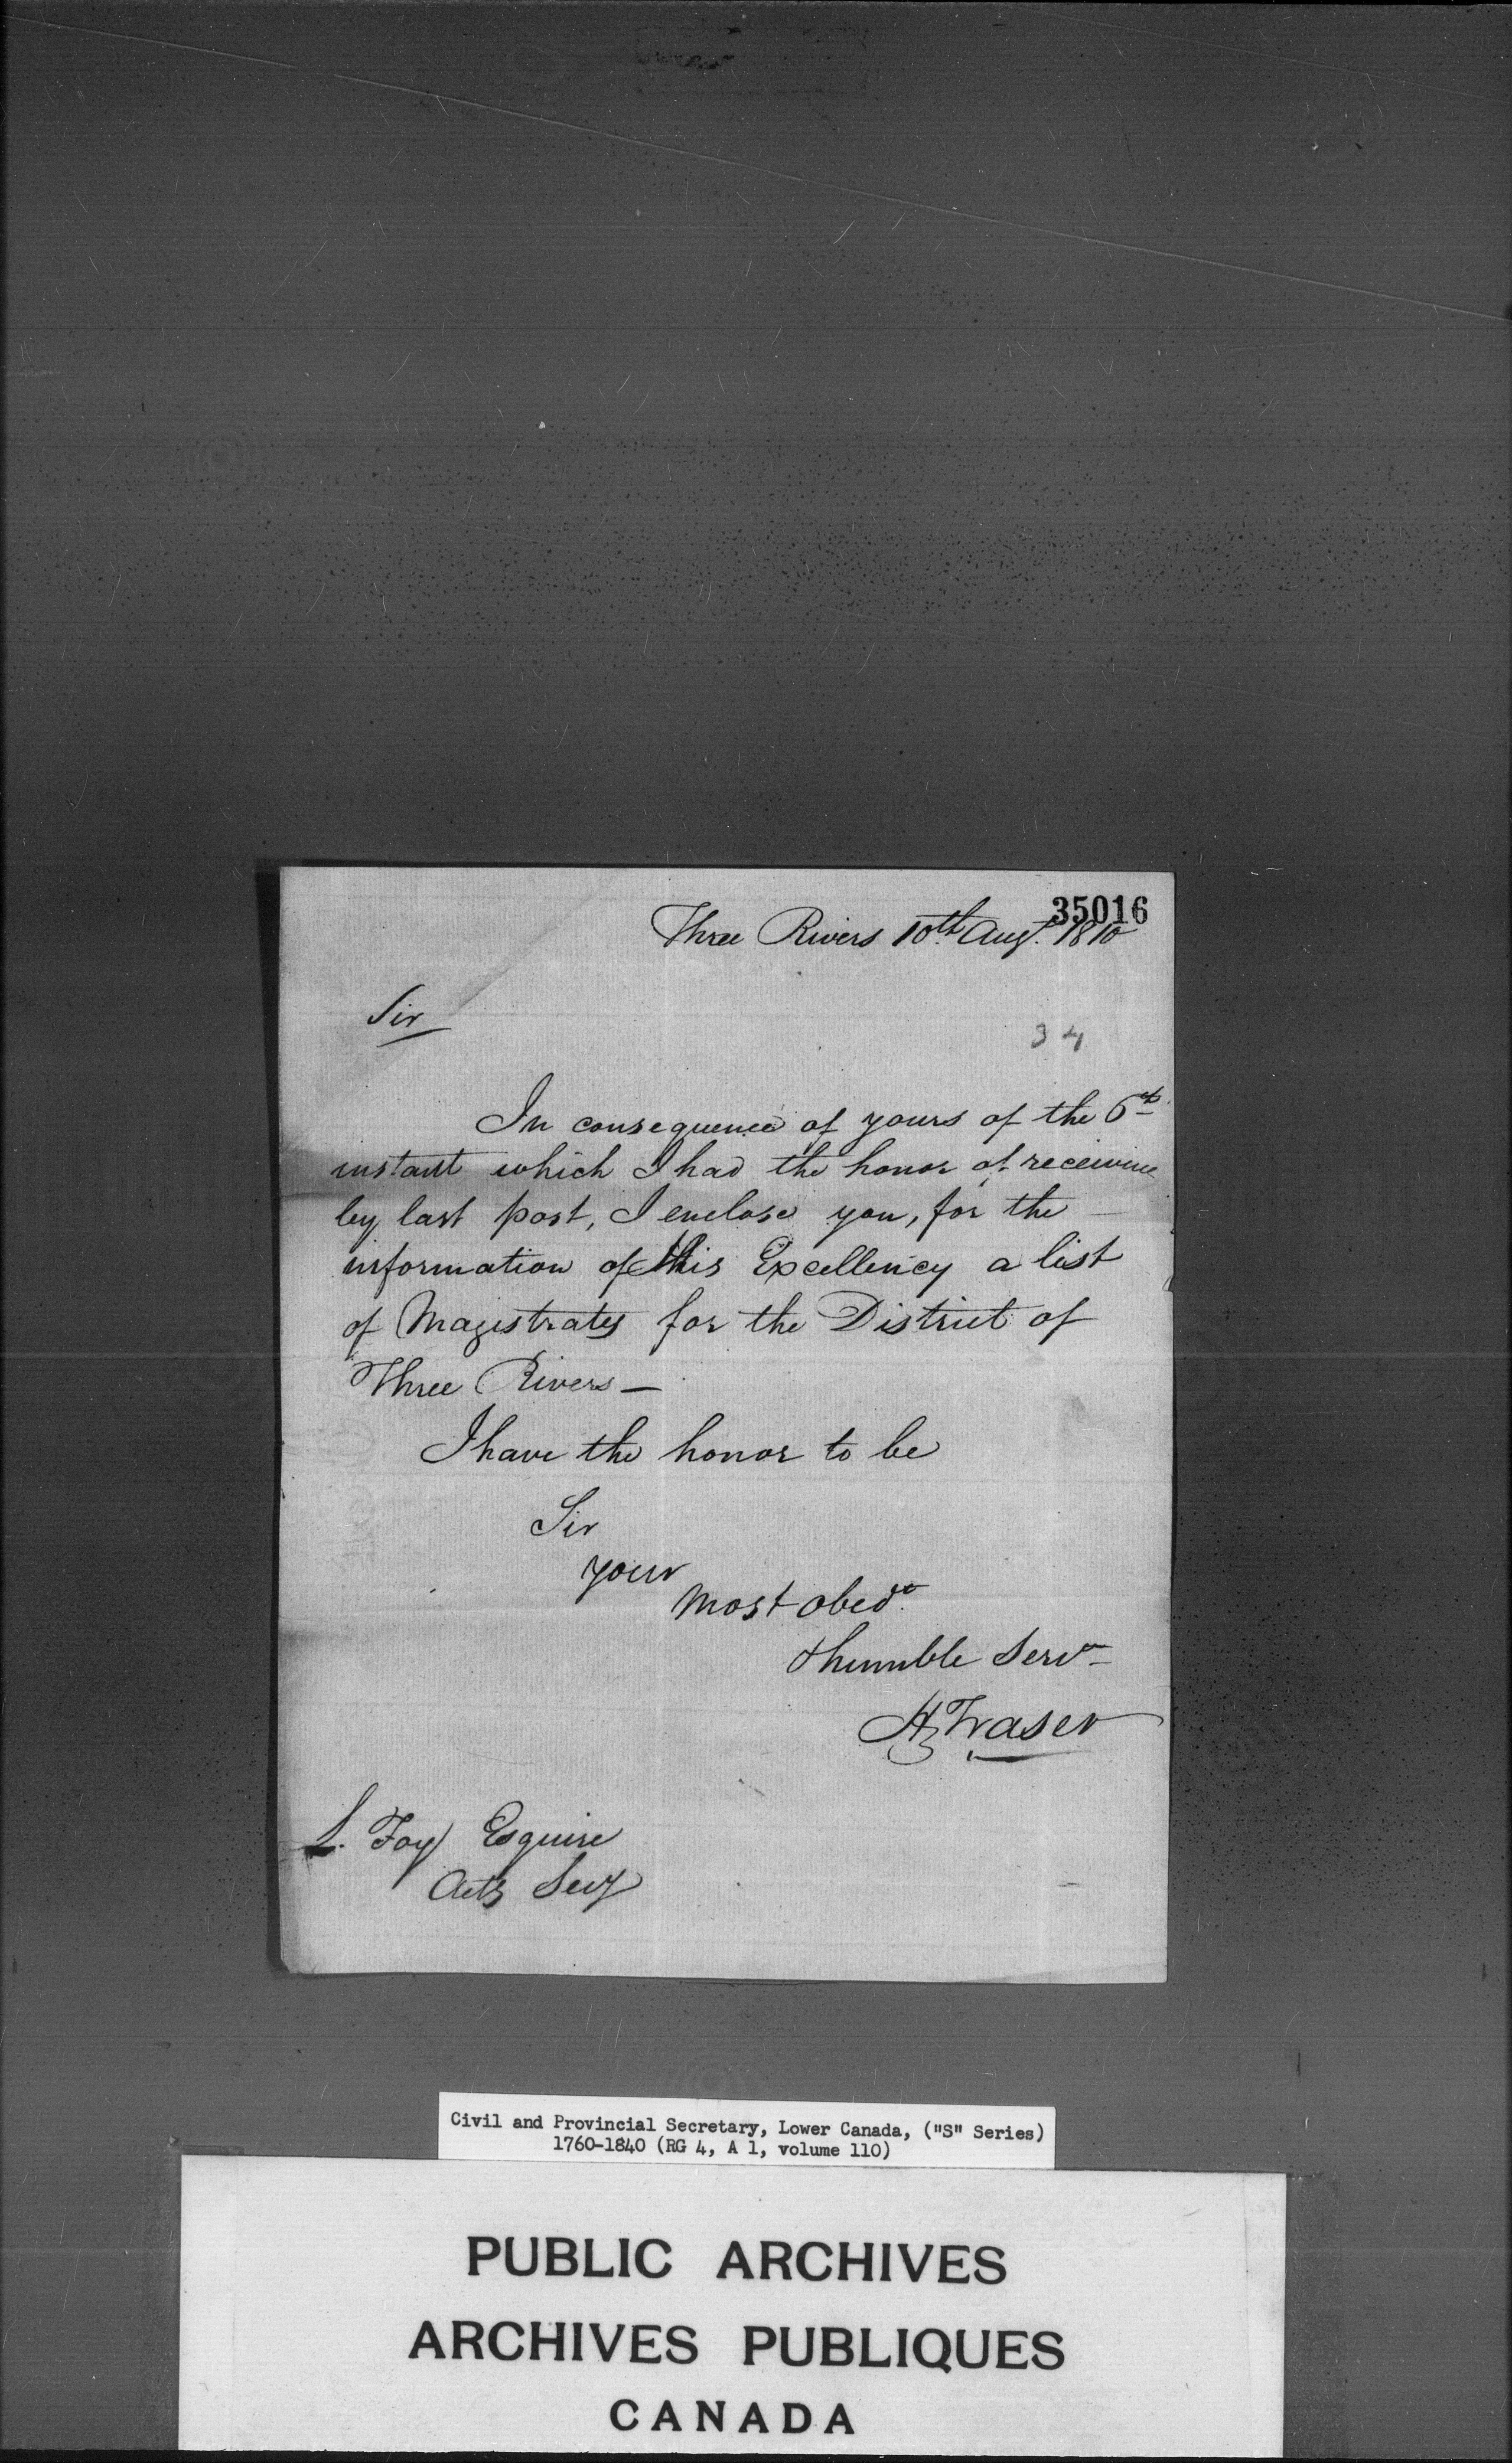 35016
Three Rivers 10th Augt. 1810
Sir
34
In consequence of yours of the 6th
instant which I had the honor of receiving
by last post, I enclose you, for the
information of His Excellency a list
of Magistrates for the District of
Three Rivers —
I have the honor to be
Sir
your
most obedt.
& humble Servt
Fraser
L. Foy Esquire
Actg Secy
Civil and Provincial Secretary, Lower Canada, ("S" Series)
1760-1840 (RG 4, A 1, volume 110)
PUBLIC ARCHIVES
ARCHIVES PUBLIQUES
CANADA